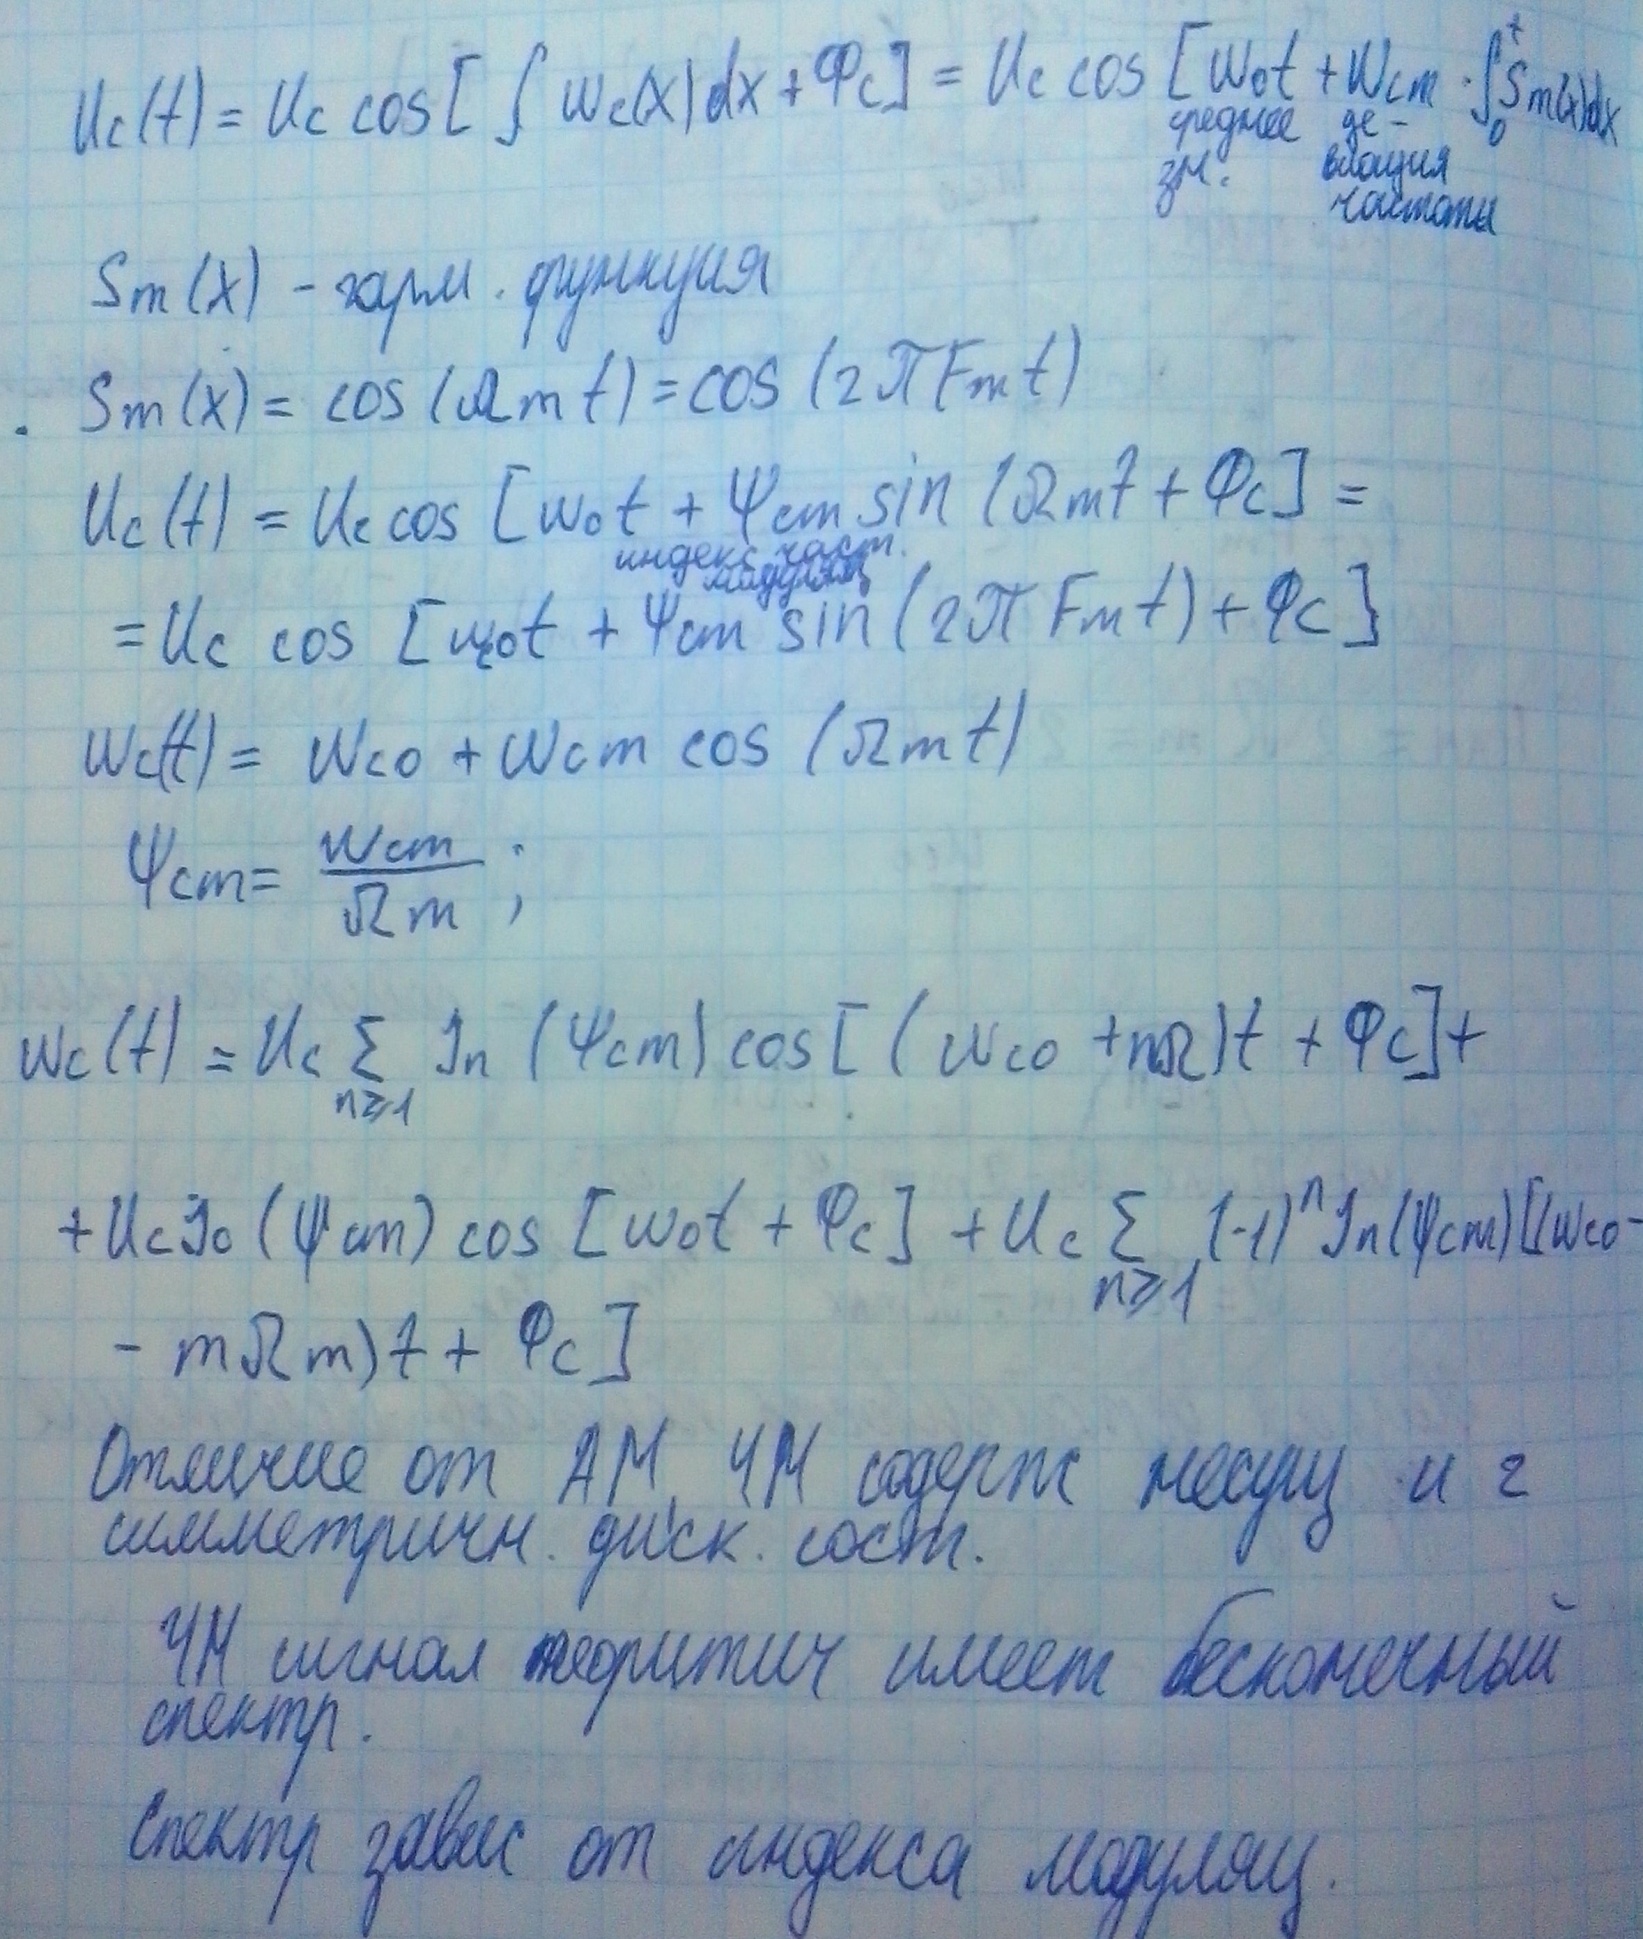 Uc(t) = Uc cos [ ∫ Wc(x)dx + Φc ] = Uc cos [ W₀t + Wcm · ∫₀ᵗ Sm(x)dx
среднее де-
зн. виация
частоты
Sm(x) - гарм. функция
Sm(x) = cos (Ωmt) = cos (2πFmt)
Uc(t) = Uc cos [w₀t + Ψcm sin (Ωmt + Φc] =
индекс част.
модуляц
= Uc cos [w₀t + Ψcm sin (2πFmt) + Φc]
Wc(t) = Wco + Wcm cos (Ωmt)
Ψcm = Wcm / Ωm ;
Wc(t) = Uc Σ Jn (Ψcm) cos [ (Wco + nΩ)t + Φc] +
n≥1
+ Uc Jo (Ψcm) cos [w₀t + Φc] + Uc Σ (-1)ⁿ Jn(Ψcm) [(Wco -
n≥1
- mΩm)t + Φc ]
Отличие от АМ, ЧМ содерж несущ и 2
симметричн. диск. сост.
ЧМ сигнал теоритич имеет бесконечный
спектр.
Спектр завис от индекса модуляц.